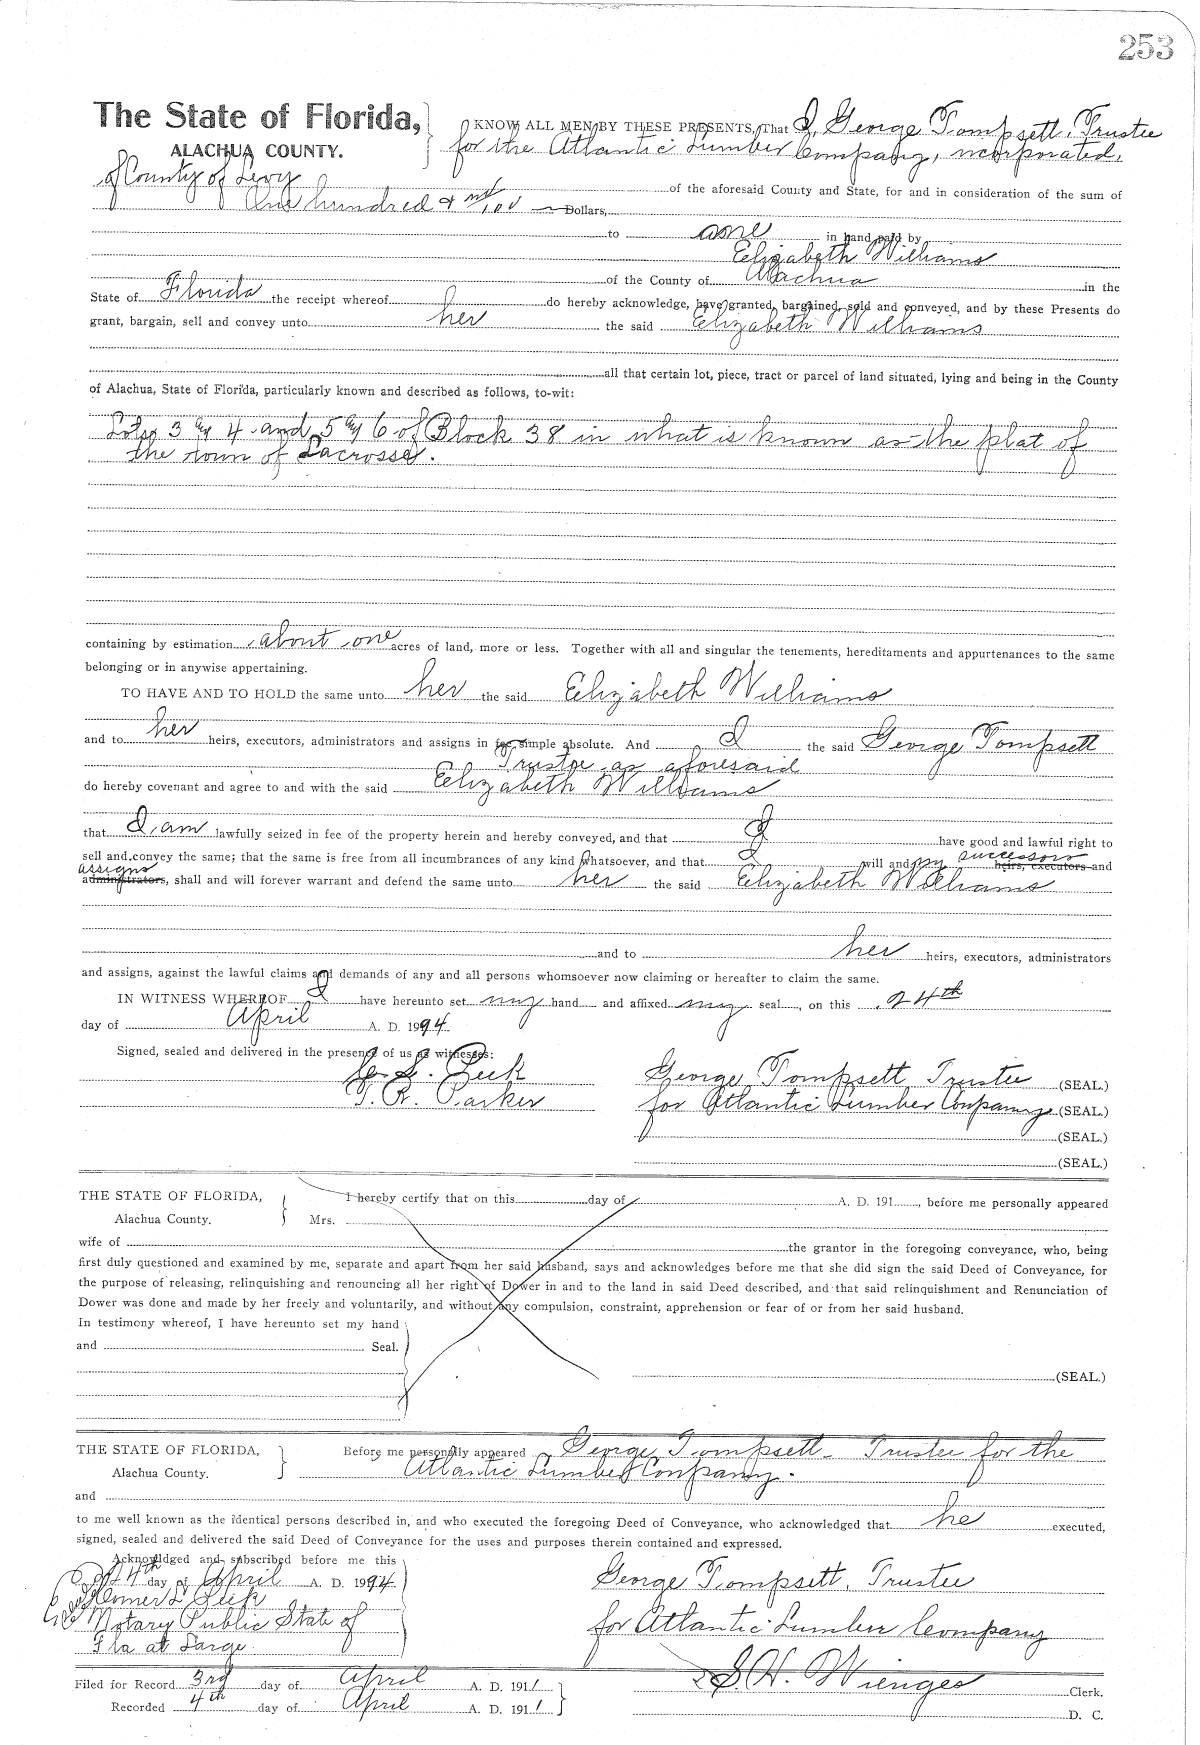 253
The State of Florida,
ALACHUA COUNTY.
KNOW ALL MEN BY THESE PRESENTS, That I, George Tompsett, Trustee
for the Atlantic Lumber Company, incorporated,
of County of Levy
of the aforesaid County and State, for and in consideration of the sum of
One hundred & no/100 Dollars,
to me in hand paid by
Elizabeth Williams
of the County of Alachua in the
State of Florida the receipt whereof do hereby acknowledge, have granted, bargained, sold and conveyed, and by these Presents do
grant, bargain, sell and convey unto her the said Elizabeth Williams
all that certain lot, piece, tract or parcel of land situated, lying and being in the County
of Alachua, State of Florida, particularly known and described as follows, to-wit:
Lots 3 & 4 and 5 & 6 of Block 38 in what is known as the plat of
the town of Lacrosse.
containing by estimation about one acres of land, more or less. Together with all and singular the tenements, hereditaments and appurtenances to the same
belonging or in anywise appertaining.
TO HAVE AND TO HOLD the same unto her the said Elizabeth Williams
and to her heirs, executors, administrators and assigns in fee simple absolute. And I the said George Tompsett
Trustee as aforesaid
do hereby covenant and agree to and with the said Elizabeth Williams
that I am lawfully seized in fee of the property herein and hereby conveyed, and that I have good and lawful right to
sell and convey the same; that the same is free from all incumbrances of any kind whatsoever, and that I will and my successors heirs, executors and
assigns administrators, shall and will forever warrant and defend the same unto her the said Elizabeth Williams
and to her heirs, executors, administrators
and assigns, against the lawful claims and demands of any and all persons whomsoever now claiming or hereafter to claim the same.
IN WITNESS WHEREOF I have hereunto set my hand and affixed my seal, on this 24th
day of April A. D. 1994.
Signed, sealed and delivered in the presence of us as witnesses:
Peek George Tompsett, Trustee (SEAL.)
Parker for Atlantic Lumber Company (SEAL.)
(SEAL.)
(SEAL.)
THE STATE OF FLORIDA,
Alachua County.
I hereby certify that on this day of A. D. 191, before me personally appeared
Mrs.
wife of the grantor in the foregoing conveyance, who, being
first duly questioned and examined by me, separate and apart from her said husband, says and acknowledges before me that she did sign the said Deed of Conveyance, for
the purpose of releasing, relinquishing and renouncing all her right of Dower in and to the land in said Deed described, and that said relinquishment and Renunciation of
Dower was done and made by her freely and voluntarily, and without any compulsion, constraint, apprehension or fear of or from her said husband.
In testimony whereof, I have hereunto set my hand
and Seal.
(SEAL.)
THE STATE OF FLORIDA,
Alachua County.
Before me personally appeared George Tompsett Trustee for the
Atlantic Lumber Company.
and
to me well known as the identical persons described in, and who executed the foregoing Deed of Conveyance, who acknowledged that he executed,
signed, sealed and delivered the said Deed of Conveyance for the uses and purposes therein contained and expressed.
Acknowldged and subscribed before me this
24th day of April A. D. 1994.
Homer L Peek
Notary Public State of
Fla at Large.
George Tompsett, Trustee
for Atlantic Lumber Company
Filed for Record 3rd day of April A. D. 1911
Recorded 4th day of April A. D. 1911
S. H. Wienges Clerk.
D. C.